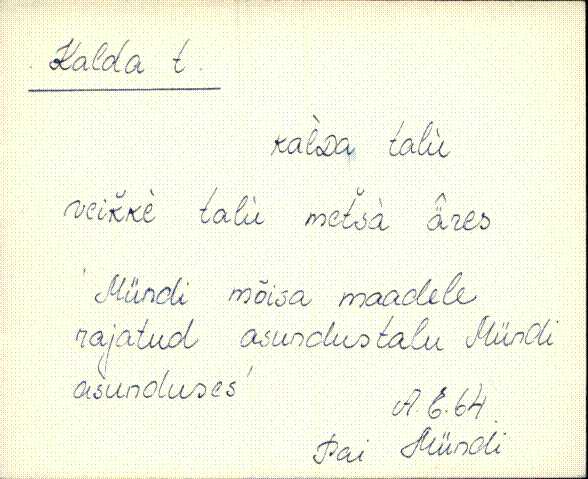 Kalda t.
kàl̀ᴅa talù
veiǩǩè talù metšà âres
'Mündi mõisa maadele
rajatud asundustalu Mündi
asunduses'
A. E. 64.
Pai Mündi